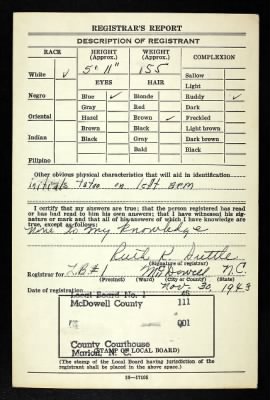 REGISTRAR'S REPORT
DESCRIPTION OF REGISTRANT
RACE HEIGHT (Approx.) WEIGHT (Approx.) COMPLEXION
5' 11" 155
White ✓ Sallow
EYES HAIR Light
Negro Blue ✓ Blonde Ruddy ✓
Gray Red Dark
Oriental Hazel Brown ✓ Freckled
Brown Black Light brown
Indian Black Gray Dark brown
Bald Black
Filipino
Other obvious physical characteristics that will aid in identification
initials tatoo on left arm
I certify that my answers are true; that the person registered has read
or has had read to him his own answers; that I have witnessed his sig-
nature or mark and that all of his answers of which I have knowledge are
true, except as follows:
None to my knowledge
Ruth K
(Signature of registrar)
Registrar for L.B.#1 McDowell N.C.
(Precinct) (Ward) (City or County) (State)
Date of registration Nov. 30, 1943
Local Board No. 1
McDowell County 111
001
County Courthouse
Marion, N. C.
(STAMP OF LOCAL BOARD)
(The stamp of the Local Board having jurisdiction of the
registrant shall be placed in the above space.)